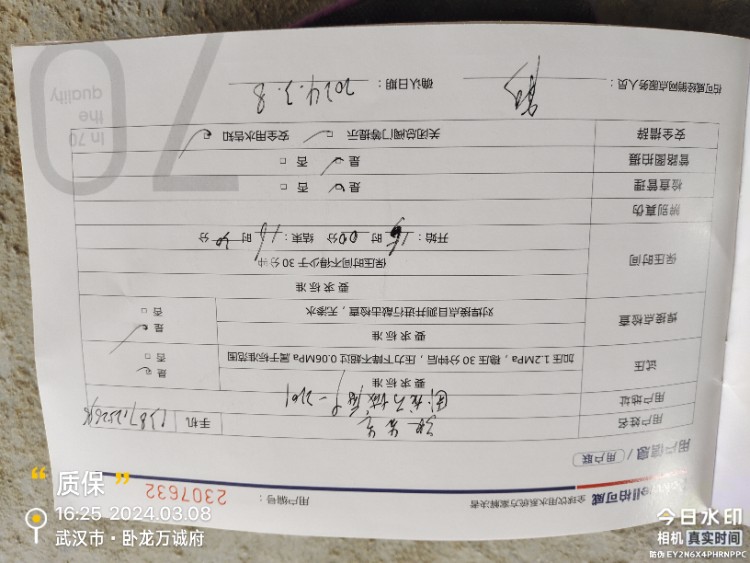 全球饮用水系统方案解决者
用户编号：
2307632
用户信息 / 用户联
用户姓名
手机
用户地址
试压
要求标准
加压1.2MPa，稳压30分钟后，压力下降不超过0.06MPa属于标准范围
是
否
焊接点检查
要求标准
对焊接点目测并进行敲击检查，无渗水
是
否
保压时间
要求标准
保压时间不得少于30分钟
开始： 时 00 分 结束： 时 30 分
辨别真伪
检查管理
是 否
管路图拍摄
是 否
安全措辞
关闭总阀门等提示 安全用水告知
确认日期： 2024.3.8
In 70
the
quality
70
“质保”
16:25 2024.03.08
武汉市·卧龙万诚府
今日水印
相机 真实时间
防伪 EY2N6X4PHRNPPC